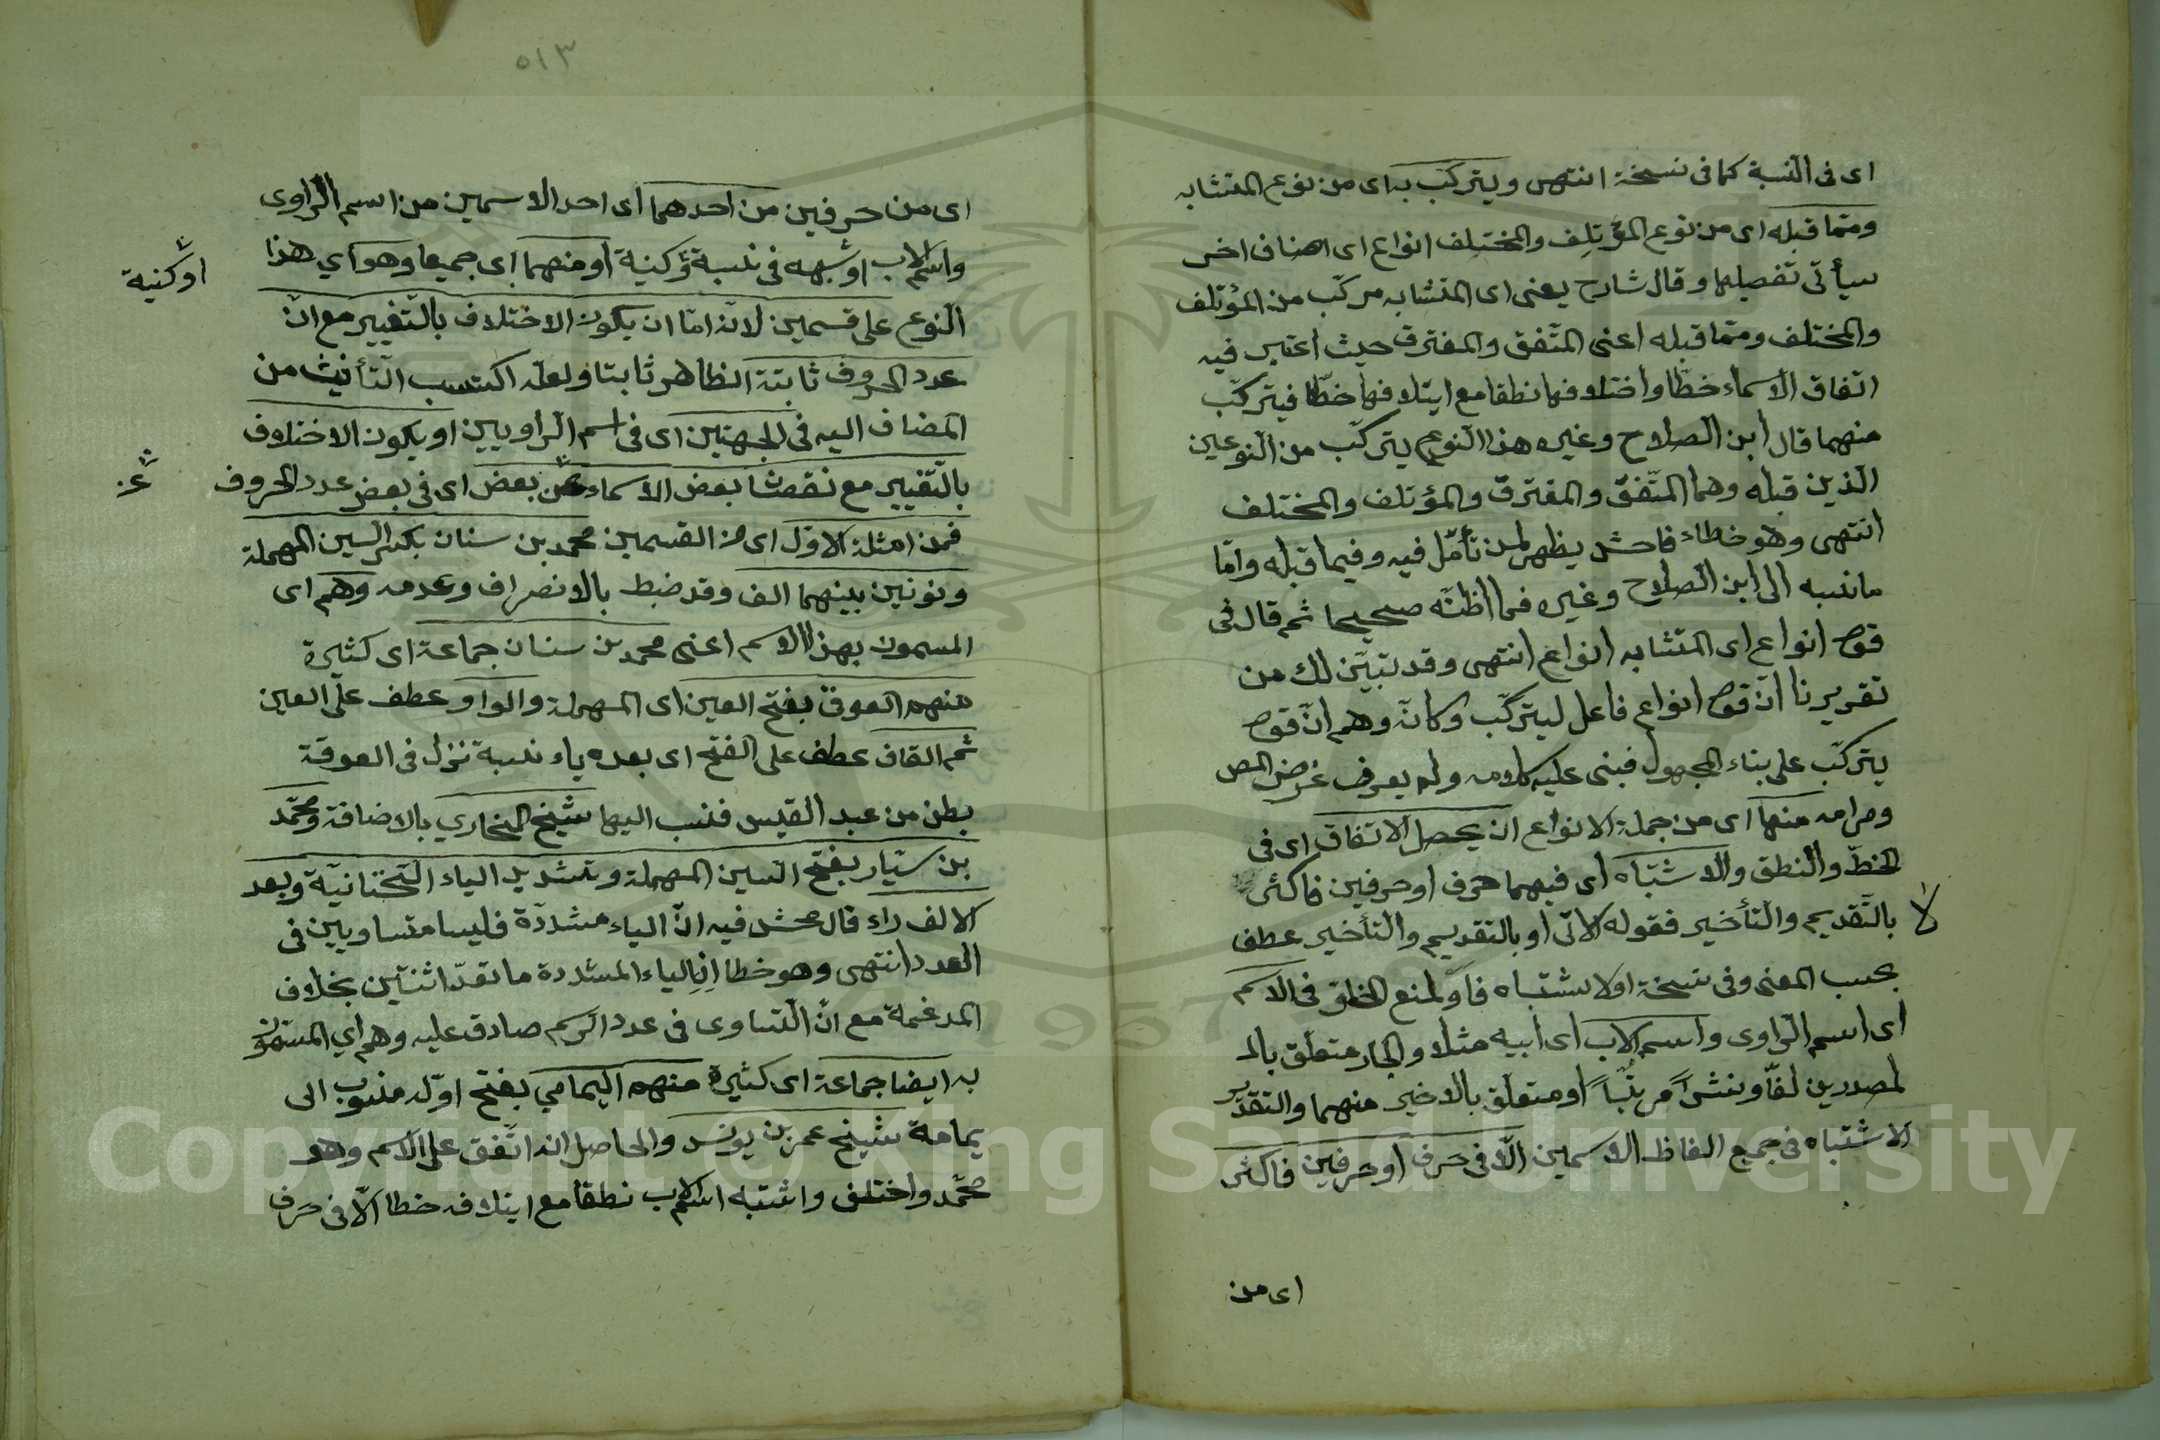 اى فى النسبة كما فى نسخة انتهى ويتركب به اى من نوع المتشابه
ومما قبله اى من نوع المؤتلف والمختلف انواع اى اصناف اخر
سيأتى تفصيلها وقال شارح يعنى اى المتشابه مركب من المؤتلف
والمختلف ومما قبله اعنى المتفق والمفترق حيث اعتبر فيه
اتفاق الاسماء خطا واختلافها نطقا مع ايتلافها خطا فيتركب
منهما قال ابن الصلاح وغيره هذا النوع يتركب من النوعين
الذين قبله وهما المتفق والمفترق والمؤتلف والمختلف
انتهى وهو خطاء فاحش يظهر لمن تأمل فيه وفيما قبله واما
ما نسبه الى ابن الصلاح وغيره فما اظنه صحيحا ثم قال فى
قوله انواع اى المتشابه انواع انتهى وقد تبين لك من
تقريرنا ان قوله انواع فاعل ليتركب وكانه وهم ان قوله
يتركب على بناء المجهول فبنى عليه كلامه ولم يعرف غرض المص
ومرامه منها اى من جملة الانواع ان يحصل الاتفاق اى فى
الخط والنطق والاشتباه اى فيهما حرف او حرفين فاكثر
لا
بالتقديم والتأخير فقوله الاتى او بالتقديم والتأخير عطف
بحسب المعنى وفى نسخة او لاشتباه فاو لمنع الخلو فى الاسم
اى اسم الراوى واسم الاب اى ابيه مثلا والجار متعلق بال
لمصدرين لفا ونشرا مرتبا او متعلق بالاخير منهما والتقدير
الاشتباه فى جميع الفاظ الاسمين الا فى حرف او حرفين فاكثر
اى من
٥١٣
اى من حرفين من احدهما اى احد الاسمين من اسم الراوى
واسم الاب او شبهه فى نسبة وكنية او منهما اى جميعا وهو اي هذا
او كنية
النوع على قسمين لانه اما ان يكون الاختلاف بالتغيير مع ان
عدد الحروف ثابتة الظاهر ثابتا ولعله اكتسب التأنيث من
المضاف اليه فى الجهتين اى فى اسم الراويين او يكون الاختلاف
بالتغيير مع نقصان بعض الاسماء عن بعض اى فى بعض عدد الحروف
عن
فمن امثلة الاول اى من القسمين محمد بن سنان بكسر السين المهملة
ونونين بينهما الف وقد ضبط بالانصراف وعدمه وهم اى
المسمون بهذا الاسم اعنى محمد بن سنان جماعة اى كثيرة
منهم العوقى بفتح العين اى المهملة والواو عطف على العين
ثم القاف عطف على الفتح اى بعده ياء نسبة نزل فى العوقة
بطن من عبد القيس فنسب اليها شيخ البخاري بالاضافة ومحمد
بن سيار بفتح السين المهملة وتشديد الياء التحتانية وبعد
الالف راء قال محش فيه ان الياء مشددة فليسا متساويين فى
العدد انتهى وهو خطا اذ الياء المشددة ما تعد اثنتين بخلاف
المدغمة مع ان التساوى فى عدد الرسم صادق عليه وهم اي المسمون
به ايضا جماعة اى كثيرة منهم اليمامي بفتح اوله منسوب الى
يمامة شيخ عمر بن يونس والحاصل انه اتفق على الاسم وهو
محمد واختلف واشتبه اسم الاب نطقا مع ايتلافه خطا الا فى حرف
Copyright © King Saud University
1957